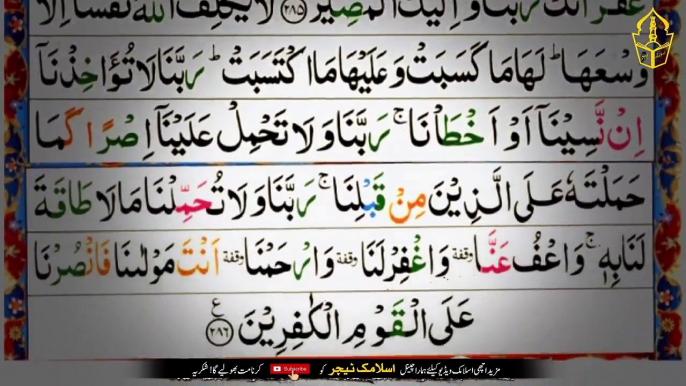 غُفْرَانَكَ رَبَّنَا وَاِلَيْكَ الْمَصِيْرُ ﴿۲۸۵﴾ لَا يُكَلِّفُ اللّٰهُ نَفْسًا اِلَّا
وُسْعَهَا ؕ لَهَا مَا كَسَبَتْ وَعَلَيْهَا مَا اكْتَسَبَتْ ؕ رَبَّنَا لَا تُؤَاخِذْنَآ
اِنْ نَّسِيْنَآ اَوْ اَخْطَاْنَا ۚ رَبَّنَا وَلَا تَحْمِلْ عَلَيْنَآ اِصْرًا كَمَا
حَمَلْتَهٗ عَلَى الَّذِيْنَ مِنْ قَبْلِنَا ۚ رَبَّنَا وَلَا تُحَمِّلْنَا مَا لَا طَاقَةَ
لَنَا بِهٖ ۚ وَاعْفُ عَنَّا وقفة وَاغْفِرْ لَنَا وقفة وَارْحَمْنَا وقفة اَنْتَ مَوْلٰىنَا فَانْصُرْنَا
عَلَى الْقَوْمِ الْكٰفِرِيْنَ ﴿۲۸۶﴾ ع
مزید اچھی اسلامک ویڈیو کیلئے ہمارا چینل اسلامک نیچر کو Subscribe کرنا مت بھولیے گا! شکریہ